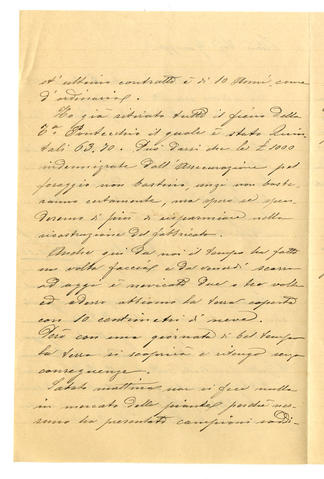 st'ultimo contratto è di 10 Anni, come
d'ordinario.
Ho già ritirato tutto il fieno della
Ta Pontecchio il quale è stato Quin-
tali 63,70. Può darsi che le £ 1000
indennizzate dall'Assicurazione pel
foraggio non bastino, anzi non baste-
ranno certamente, ma spero se spen-
deremo di più di risparmiare nella
ricostruzione del fabbricato.
Anche qui da noi il tempo ha fatto
un volta faccia, è da venerdì scorso
ad oggi è nevicato due o tre volte
ed adesso abbiamo la terra coperta
con 10 centimetri di neve.
Però con una giornata di bel tempo
la terra si scoprirà e ritengo senza
conseguenze.
Sabato mattina non si fece nulla
in mercato delle piante, perchè nes-
suno ha presentato campioni soddi-